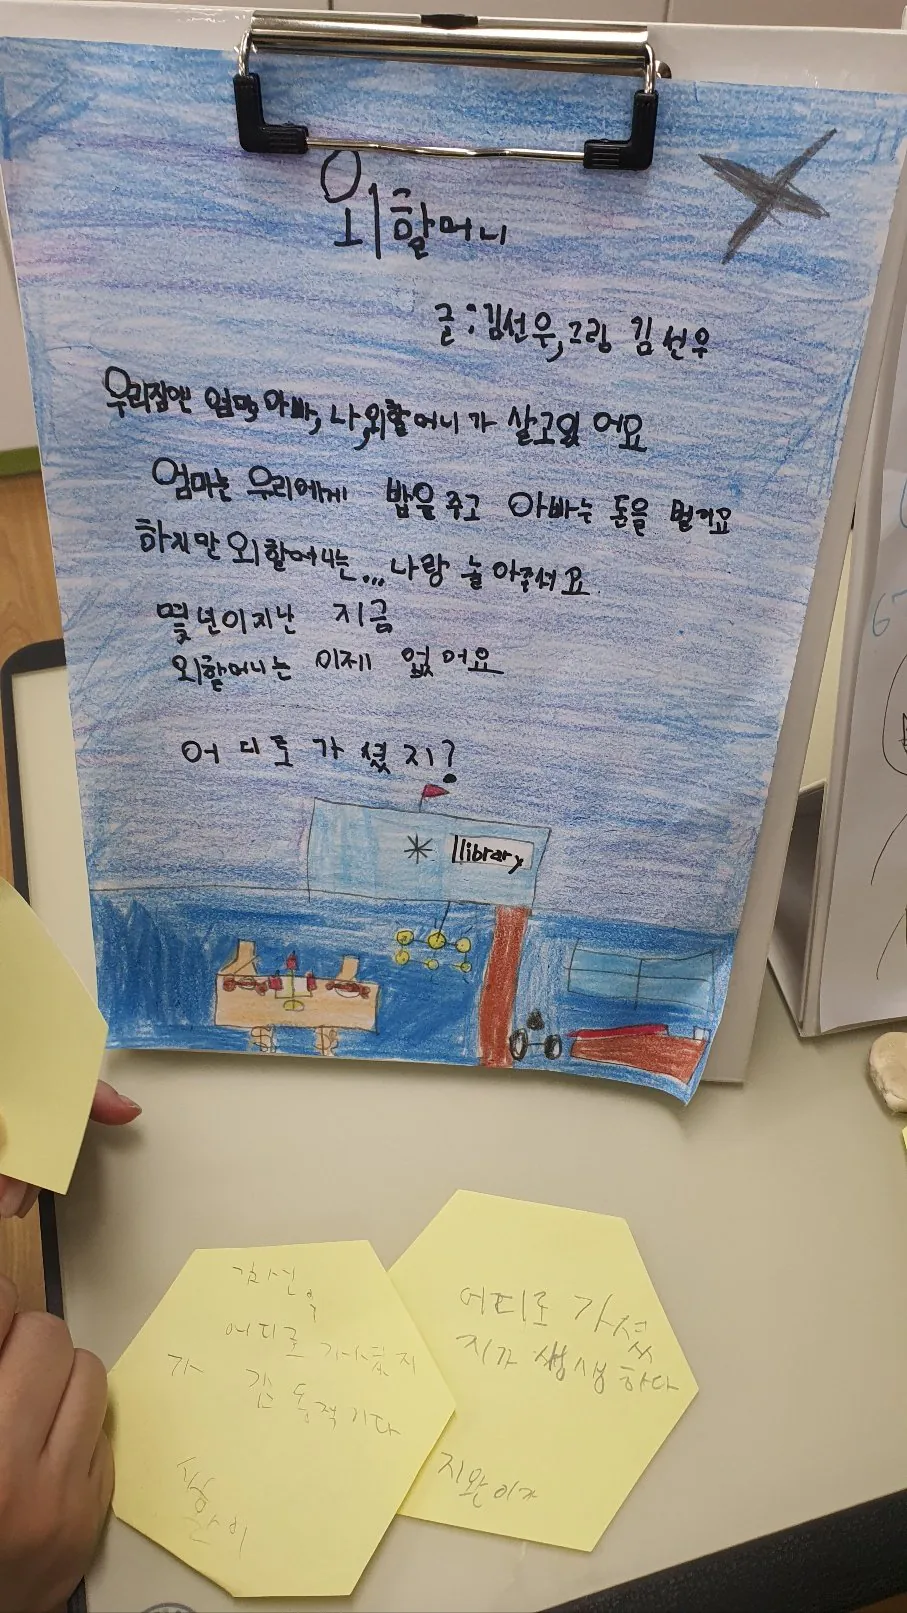 외할머니
글:김선우,그림 김선우
우리집엔 엄마,아빠,나,외할머니가 살고있어요
엄마는 우리에게 밥을주고 아빠는 돈을 벌거요
하지만외할머니는...나랑 놀아주셔요
몇년이지난 지금
외할머니는 이제 없어요
어디로가셨지?
llibrary
김선우
어디로 가셨지
가 감동적이다
어디로 가셨
지가 생생하다
지완이가